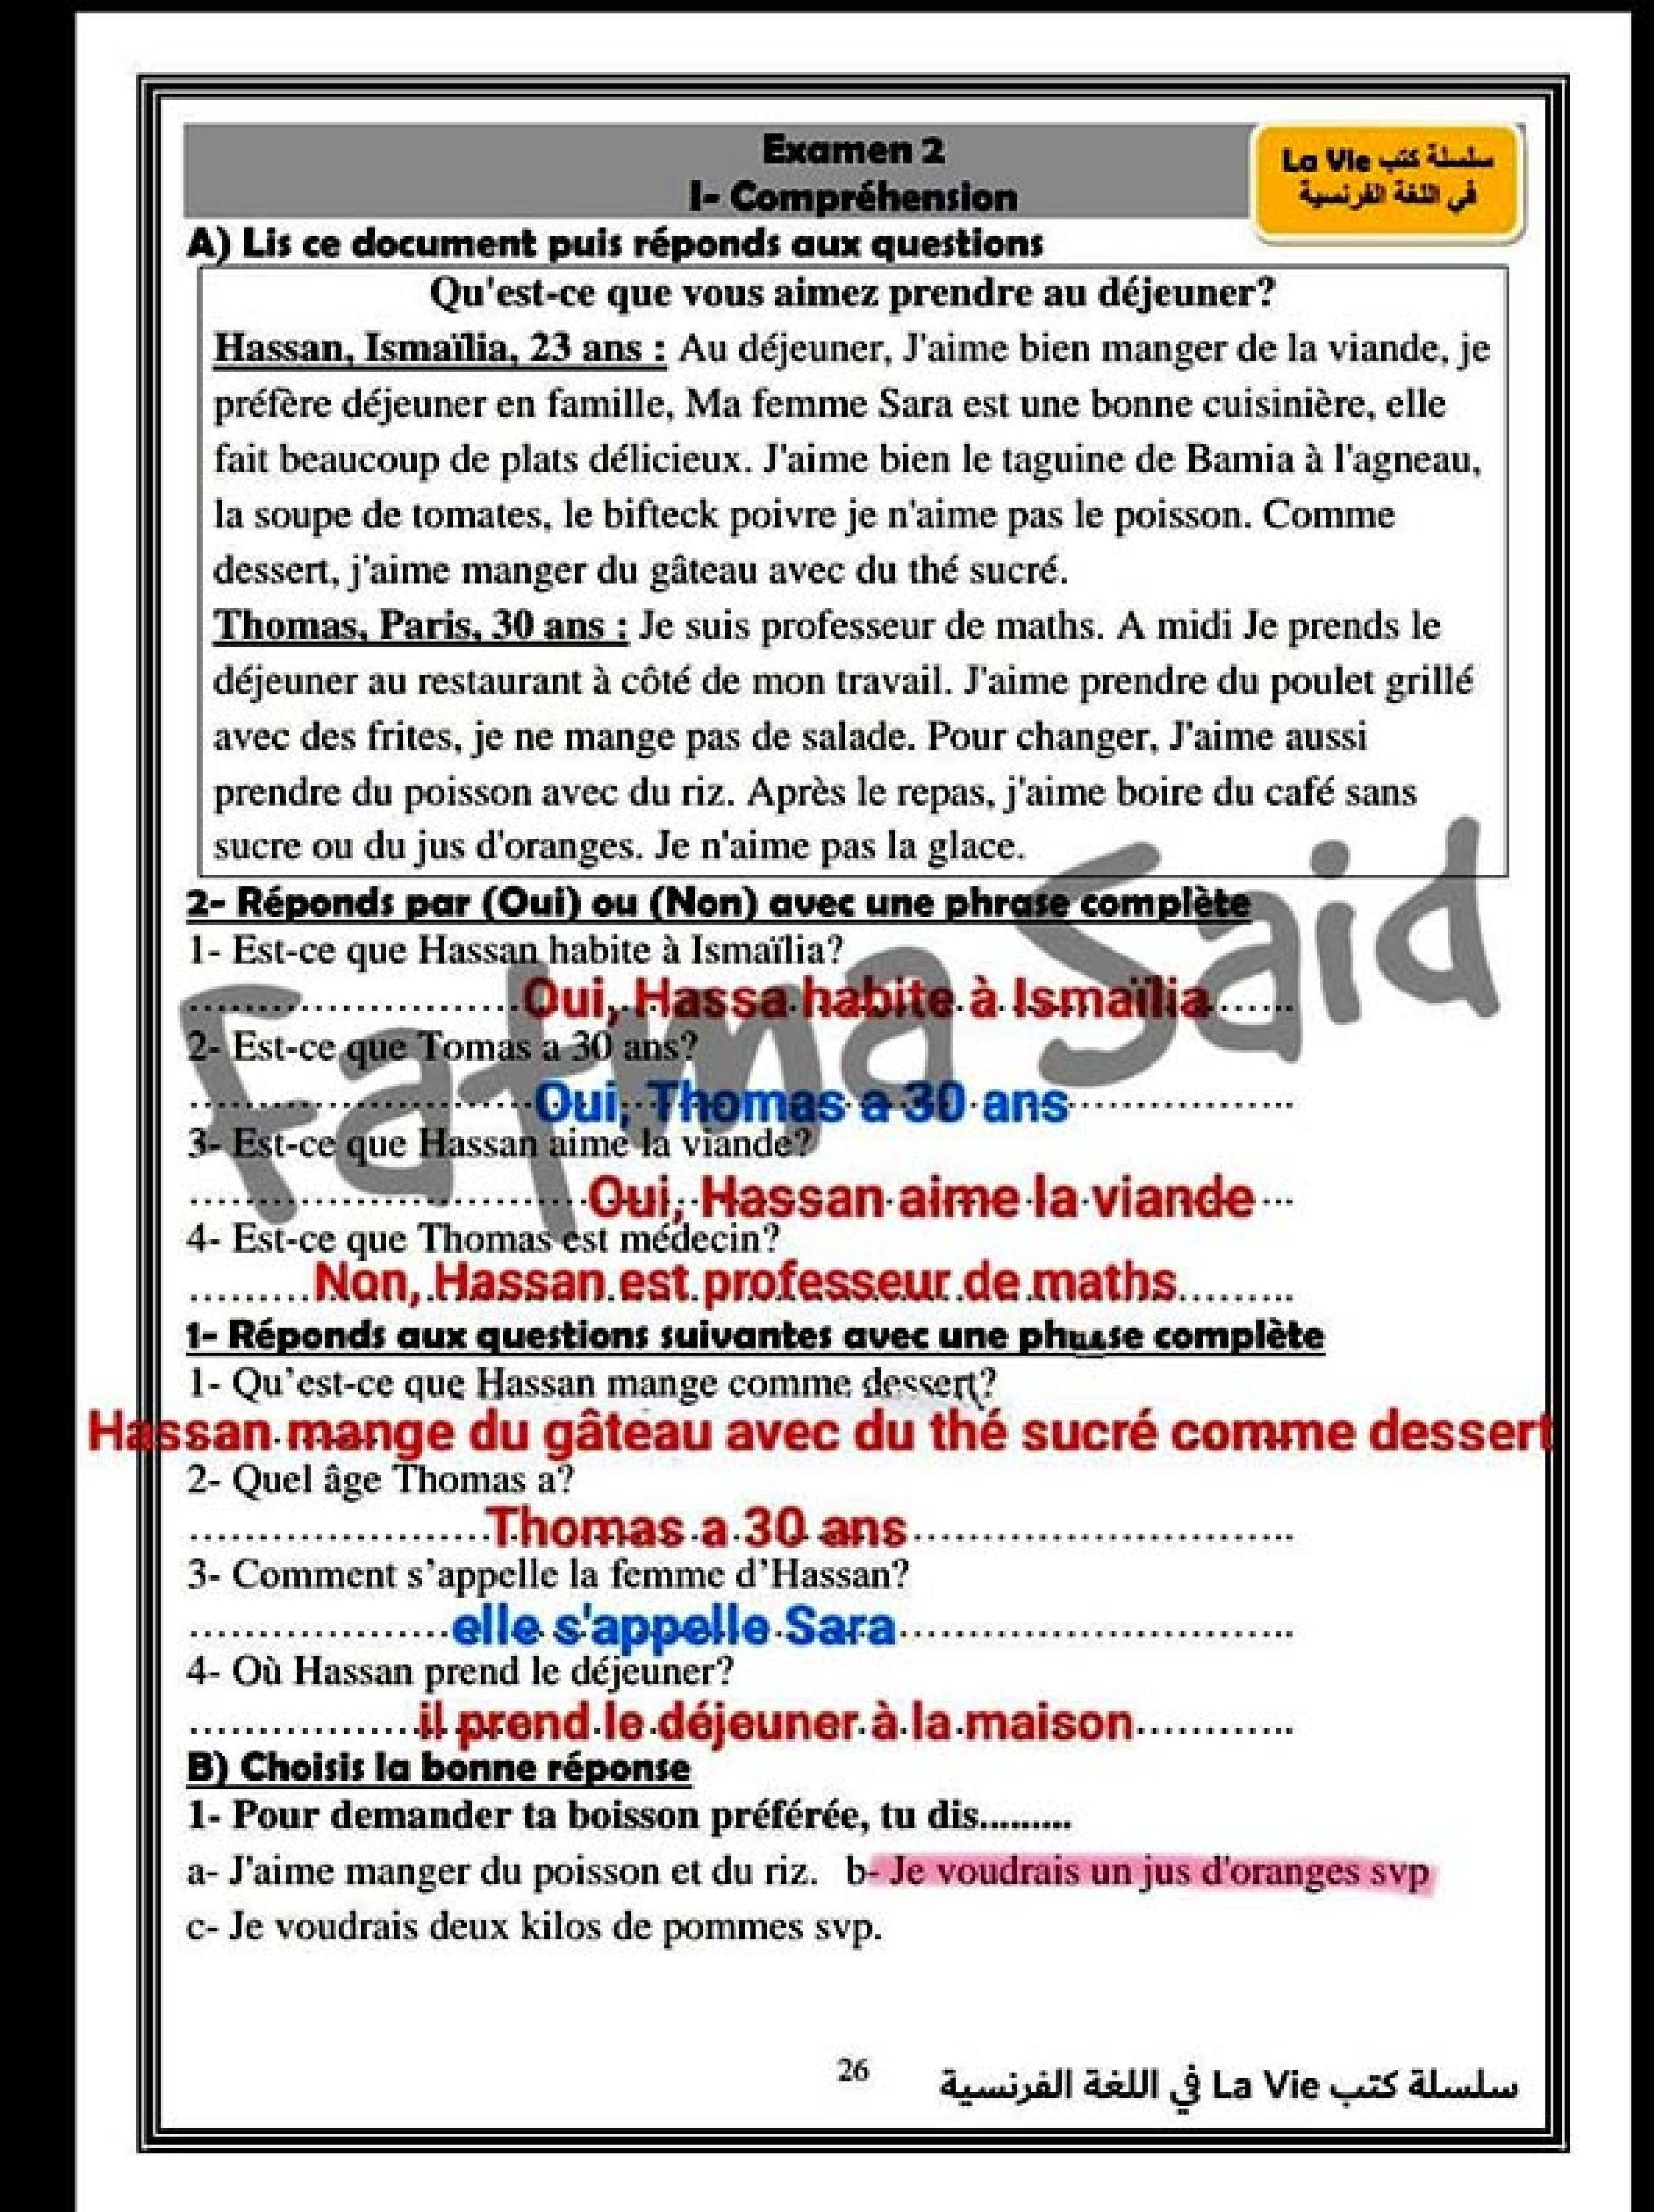 Examen 2
I- Compréhension
سلسلة كتب La Vie
في اللغة الفرنسية
A) Lis ce document puis réponds aux questions
Qu'est-ce que vous aimez prendre au déjeuner?
Hassan, Ismaïlia, 23 ans : Au déjeuner, J'aime bien manger de la viande, je
préfère déjeuner en famille, Ma femme Sara est une bonne cuisinière, elle
fait beaucoup de plats délicieux. J'aime bien le taguine de Bamia à l'agneau,
la soupe de tomates, le bifteck poivre je n'aime pas le poisson. Comme
dessert, j'aime manger du gâteau avec du thé sucré.
Thomas, Paris, 30 ans : Je suis professeur de maths. A midi Je prends le
déjeuner au restaurant à côté de mon travail. J'aime prendre du poulet grillé
avec des frites, je ne mange pas de salade. Pour changer, J'aime aussi
prendre du poisson avec du riz. Après le repas, j'aime boire du café sans
sucre ou du jus d'oranges. Je n'aime pas la glace.
Fatma Said
2- Réponds par (Oui) ou (Non) avec une phrase complète
1- Est-ce que Hassan habite à Ismaïlia?
Oui, Hassa habite à Ismaïlia
2- Est-ce que Tomas a 30 ans?
Oui, Thomas a 30 ans
3- Est-ce que Hassan aime la viande?
Oui, Hassan aime la viande
4- Est-ce que Thomas est médecin?
Non, Hassan est professeur de maths
1- Réponds aux questions suivantes avec une phrase complète
1- Qu’est-ce que Hassan mange comme dessert?
Hassan mange du gâteau avec du thé sucré comme dessert
2- Quel âge Thomas a?
Thomas a 30 ans
3- Comment s’appelle la femme d’Hassan?
elle s'appelle Sara
4- Où Hassan prend le déjeuner?
il prend le déjeuner à la maison
B) Choisis la bonne réponse
1- Pour demander ta boisson préférée, tu dis.........
a- J'aime manger du poisson et du riz. b- Je voudrais un jus d'oranges svp
c- Je voudrais deux kilos de pommes svp.
26
سلسلة كتب La Vie في اللغة الفرنسية